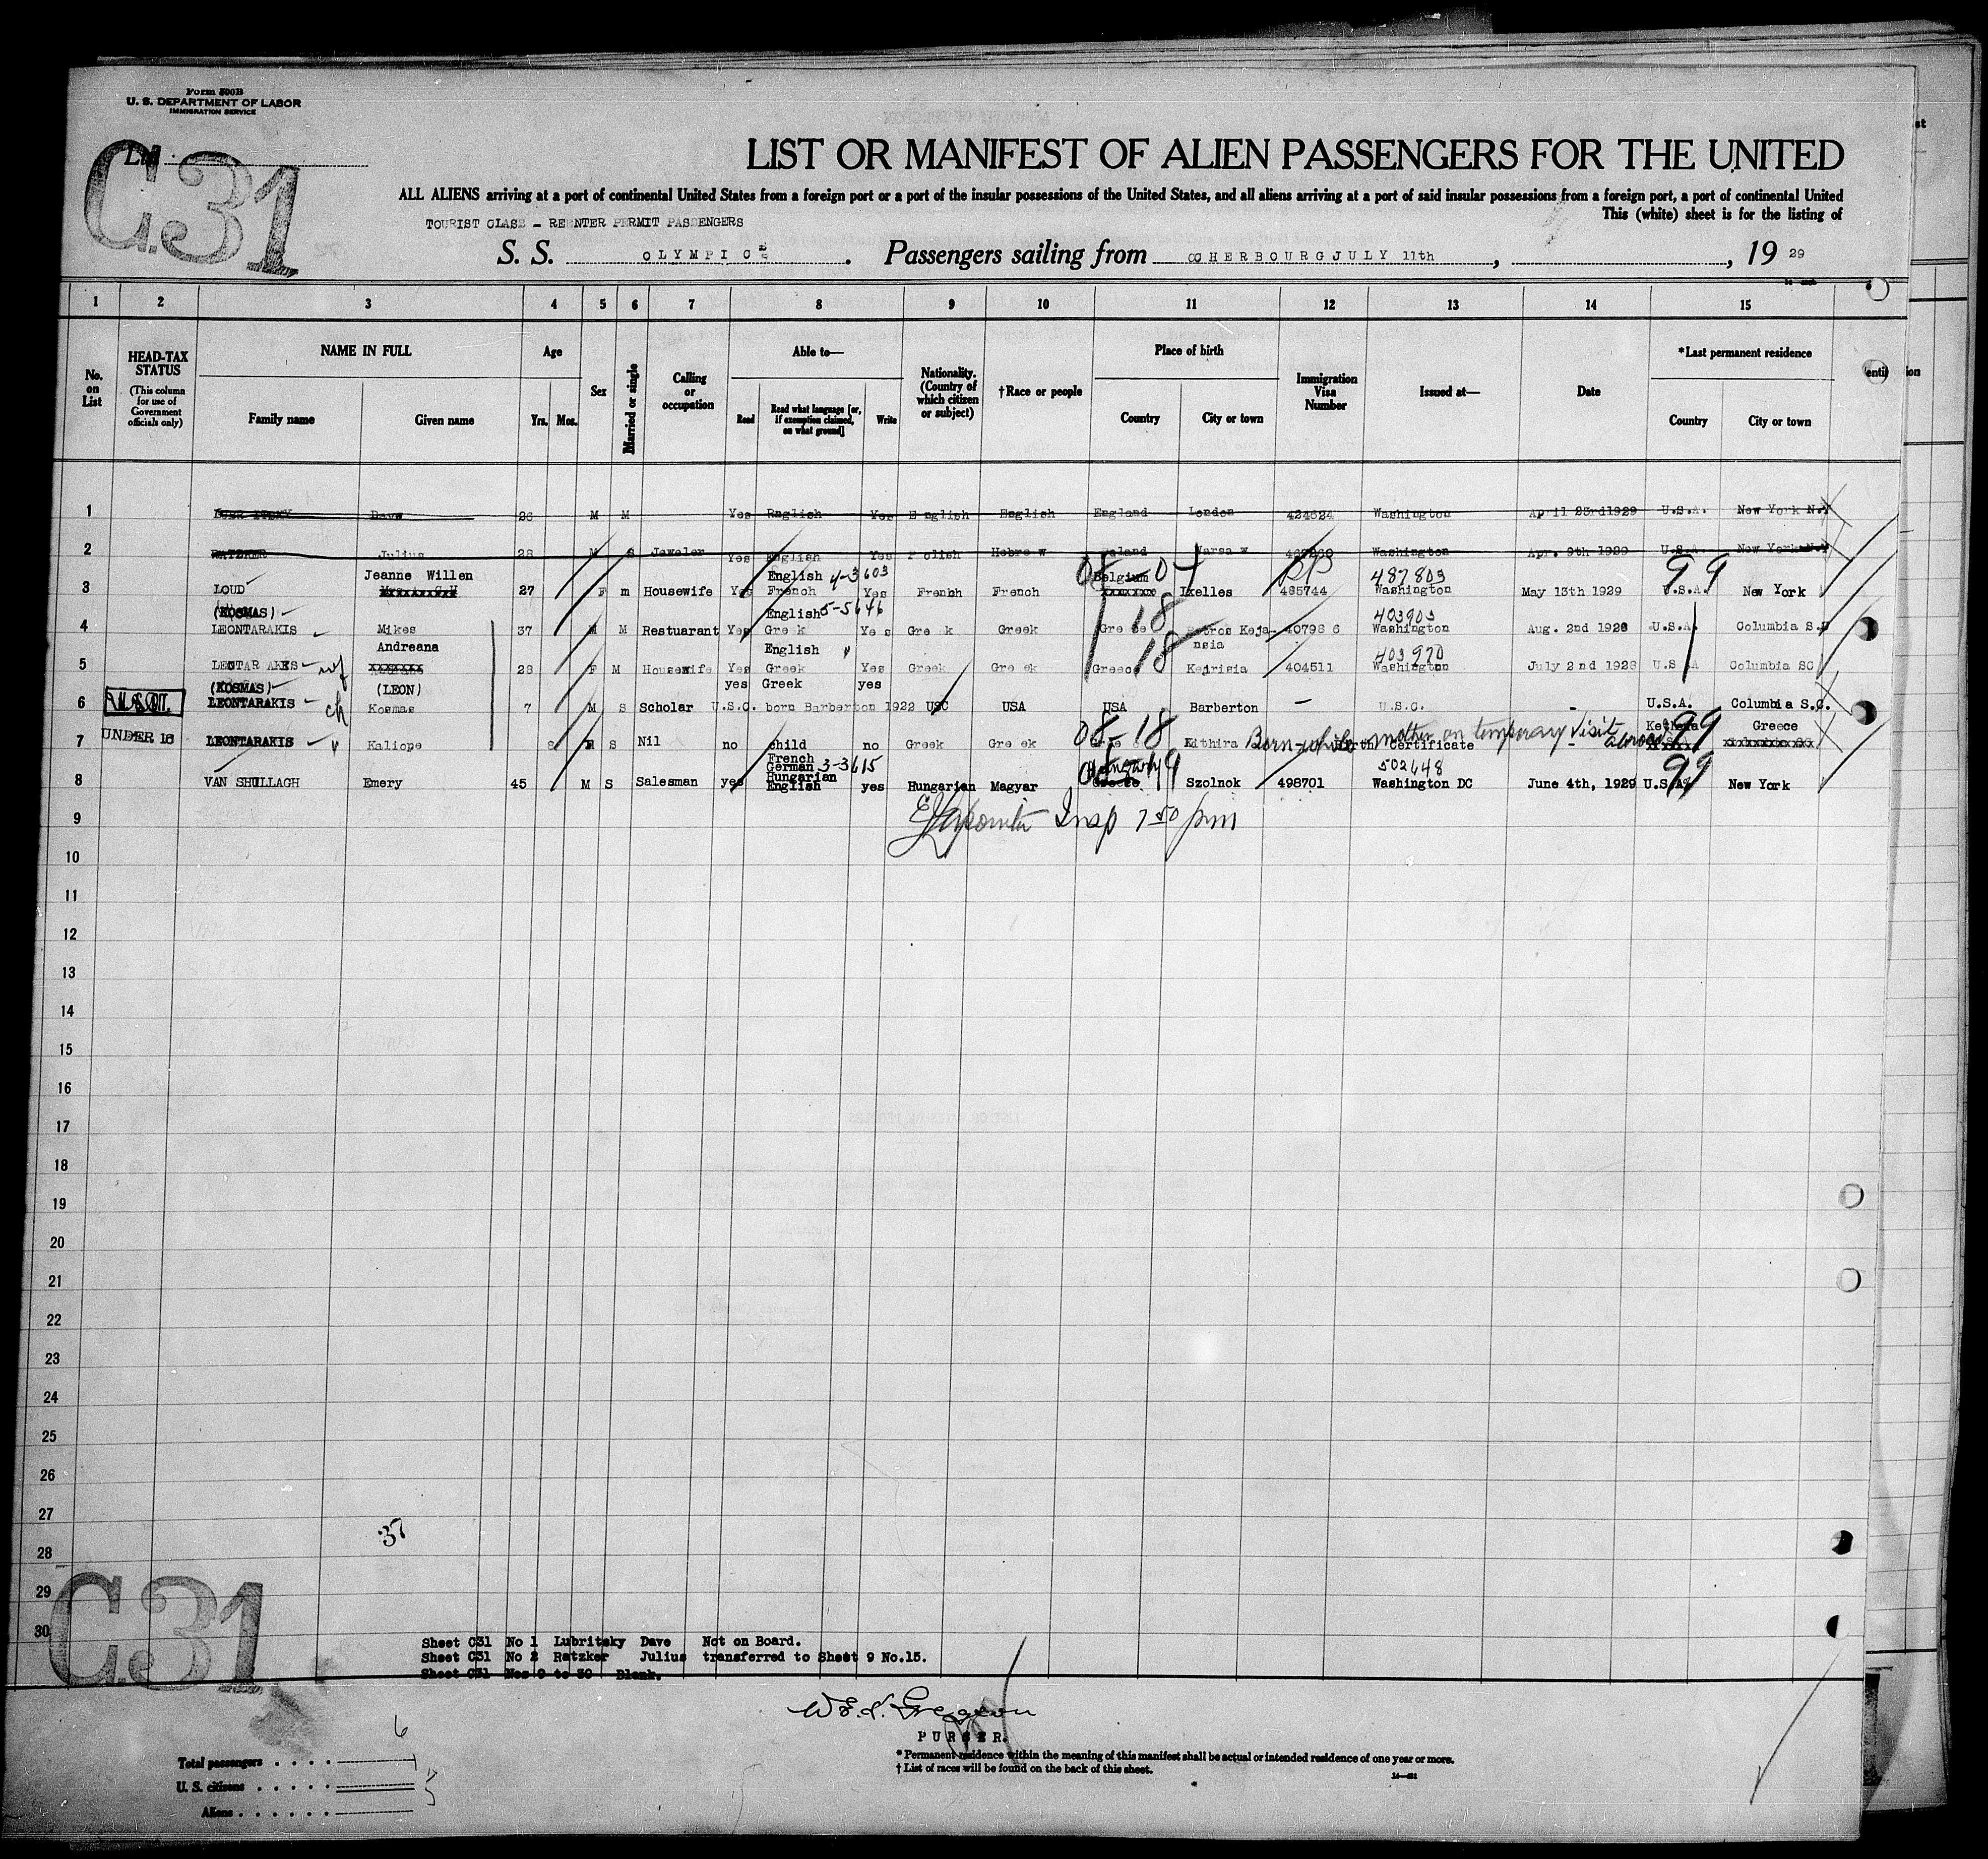 Form 500B
U. S. DEPARTMENT OF LABOR
IMMIGRATION SERVICE
List
C.31
LIST OR MANIFEST OF ALIEN PASSENGERS FOR THE UNITED
ALL ALIENS arriving at a port of continental United States from a foreign port or a port of the insular possessions of the United States, and all aliens arriving at a port of said insular possessions from a foreign port, a port of continental United
This (white) sheet is for the listing of
TOURIST CLASS - REENTER PERMIT PASSENGERS
S. S. OLYMPIC. Passengers sailing from CHERBOURG JULY 11th, , 19 29
1 2 3 4 5 6 7 8 9 10 11 12 13 14 15
No. on List
HEAD-TAX STATUS
(This column for use of Government officials only)
NAME IN FULL
Family name Given name
Age
Yrs. Mos.
Sex
Married or single
Calling or occupation
Able to—
Read Read what language [or, if exemption claimed, on what ground] Write
Nationality. (Country of which citizen or subject)
†Race or people
Place of birth
Country City or town
Immigration Visa Number
Issued at—
Date
*Last permanent residence
Country City or town
1 Dave 26 M M Yes English Yes English English England London 424624 Washington April 23rd1929 U.S.A. New York N.Y
2 RATZKER Julius 28 M S Jeweler Yes English Yes Polish Hebrew Poland Warsaw Washington Apr. 9th 1929 U.S.A. New York N.Y
Jeanne Willen English 4-3603 Belgium 04 PP 487803 99
3 LOUD 27 F m Housewife Yes French Yes French French Ixelles 465744 Washington May 13th 1929 U.S.A. New York
(KOSMAS) English 5-5646 18 403903
4 LEONTARAKIS Mikes 37 M M Restuarant Yes Greek Yes Greek Greek Greece 407986 Washington Aug. 2nd 1928 U.S.A. Columbia S.C
Andreana English " nsia 18 403970
5 LEONTARAKES wf 28 F M Housewife Yes Greek Yes Greek Greek Greece 404511 Washington July 2nd 1928 U S A Columbia SC
(KOSMAS) (LEON) yes Greek yes
6 LEONTARAKIS ch Kosmas 7 M S Scholar U.S.C. born Barberton 1922 USC USA USA Barberton — U.S.C. - U.S.A. Columbia S.C.
UNDER 16
08-18 Born while mother on temporary visit abroad 99 Greece
7 LEONTARAKIS " Kaliope 8 S Nil no child no Greek Greek Kithira Birth Certificate -
French
German 3-3615 Hungary 502648 99
Hungarian
8 VAN SHULLAGH Emery 45 M S Salesman yes English yes Hungarian Magyar Greece Szolnok 498701 Washington DC June 4th, 1929 U.S.A. New York
9 Insp 7 50 pm
10
11
12
13
14
15
16
17
18
19
20
21
22
23
24
25
26
27
37
28
29
30
C.31
Sheet C31 No 1 Lubritsky Dave Not on Board.
Sheet C31 No 2 Ratzker Julius transferred to Sheet 9 No.15.
Sheet C31 Nos 9 to 30 Blank.
PURSER.
* Permanent residence within the meaning of this manifest shall be actual or intended residence of one year or more.
† List of races will be found on the back of this sheet.
6
Total passengers
1
U. S. citizens
5
Aliens